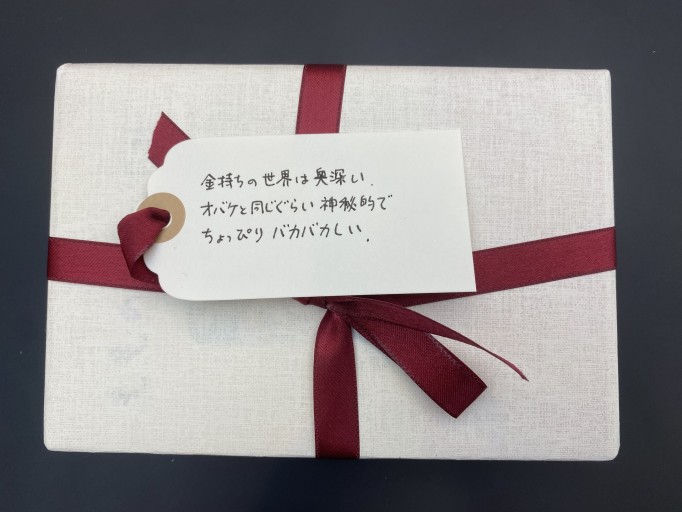 金持ちの世界は奥深い.
オバケと同じぐらい神秘的で
ちょっぴりバカバカしい.